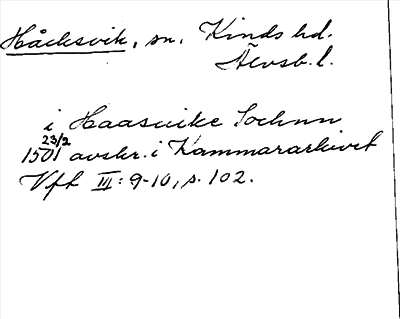 Håcksvik, sn. Kinds hd.
Älvsb. l.
i Haasvike Sochnn
23/2
1501 avskr. i Kammararkivet
Vfl III: 9-10, s. 102.